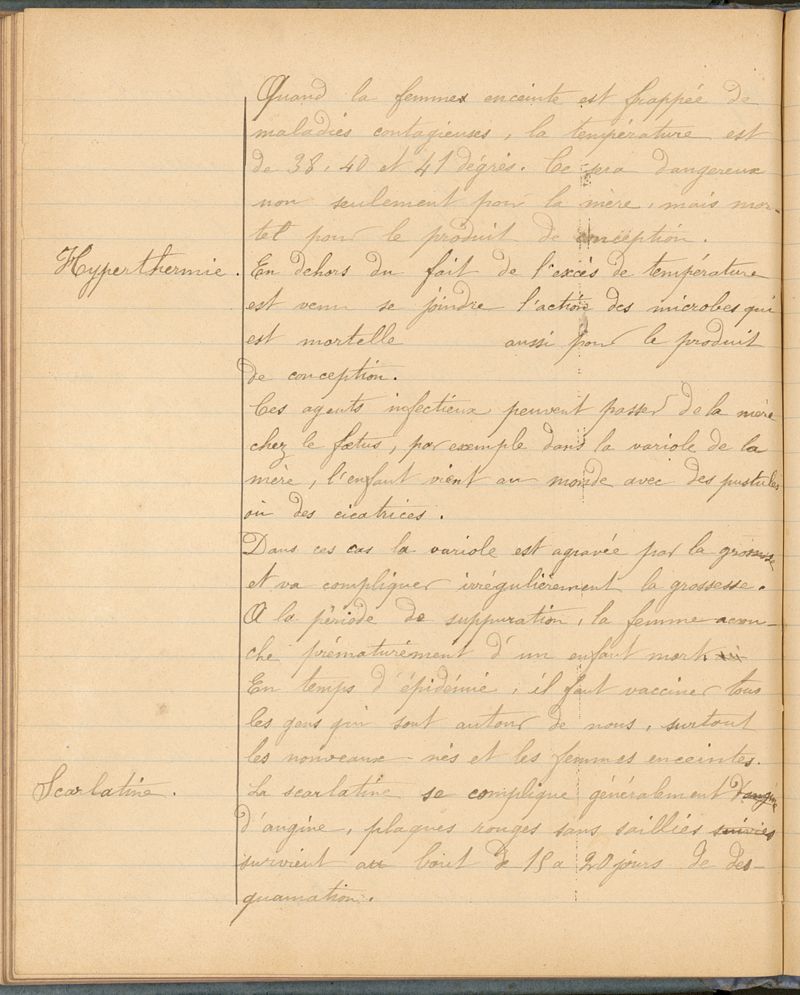 Quand la femme enceinte est frappée de
maladies contagieuses, la température est
de 38, 40 et 41 dégrès. Ce sera dangereux
non seulement pour la mère, mais mor-
tel pour le produit de conception.
Hyperthermie. En dehors du fait de l'excès de température
est venu se joindre l'action des microbes qui
est mortelle aussi pour le produit
de conception.
Ces agents infectieux peuvent passer de la mère
chez le fœtus, par exemple dans la variole de la
mère, l'enfant vient au monde avec des pustules
ou des cicatrices.
Dans ces cas la variole est agravée par la grossesse
et va compliquer irrégulièrement la grossesse.
A la période de suppuration, la femme acou-
che prématurément d'un enfant mort.
En temps d'épidémie, il faut vacciner tous
les gens qui sont autour de nous, surtout
les nouveaux-nés et les femmes enceintes.
Scarlatine. La scarlatine se complique généralement d'angine
d'angine, plaques rouges sans saillies suivies
survient au bout de 15 a 20 jours de des-
quamation.